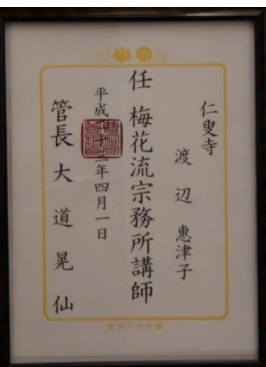 仁叟寺
渡辺 惠津子
任 梅花流宗務所講師
平成二十二年四月一日
管長 大道晃仙